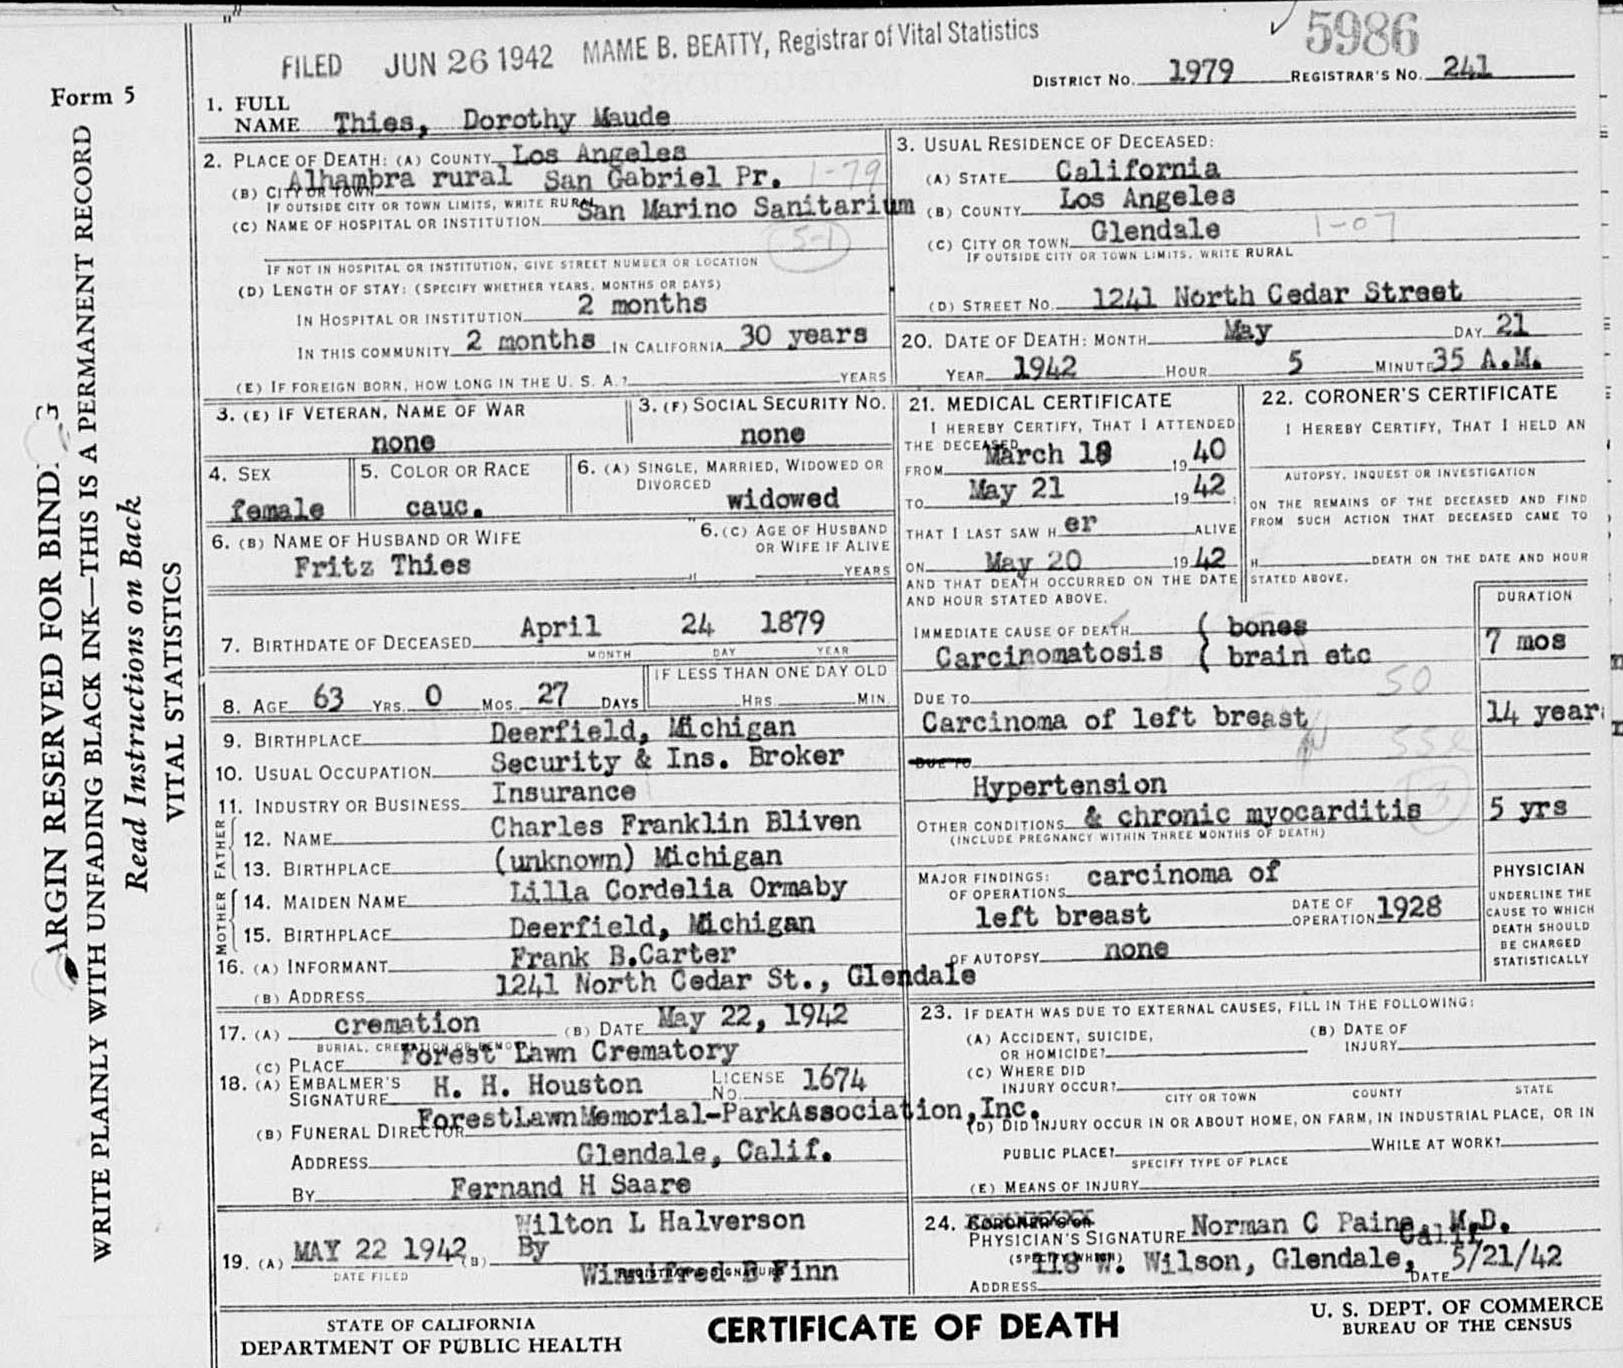 FILED JUN 26 1942 MAME B. BEATTY, Registrar of Vital Statistics
5986
DISTRICT NO. 1979 REGISTRAR'S NO. 241
Form 5
ARGIN RESERVED FOR BIND
WRITE PLAINLY WITH UNFADING BLACK INK—THIS IS A PERMANENT RECORD
Read Instructions on Back
VITAL STATISTICS
1. FULL NAME Thies, Dorothy Maude
2. PLACE OF DEATH: (A) COUNTY Los Angeles
(B) CITY OR TOWN Alhambra rural San Gabriel Pr. 1-79
IF OUTSIDE CITY OR TOWN LIMITS, WRITE RURAL
(C) NAME OF HOSPITAL OR INSTITUTION San Marino Sanitarium
5-1
IF NOT IN HOSPITAL OR INSTITUTION, GIVE STREET NUMBER OR LOCATION
(D) LENGTH OF STAY: (SPECIFY WHETHER YEARS, MONTHS OR DAYS)
IN HOSPITAL OR INSTITUTION 2 months
IN THIS COMMUNITY 2 months IN CALIFORNIA 30 years
(E) IF FOREIGN BORN, HOW LONG IN THE U. S. A.? YEARS
3. USUAL RESIDENCE OF DECEASED:
(A) STATE California
(B) COUNTY Los Angeles
(C) CITY OR TOWN Glendale 1-07
IF OUTSIDE CITY OR TOWN LIMITS, WRITE RURAL
(D) STREET NO. 1241 North Cedar Street
20. DATE OF DEATH: MONTH May DAY 21
YEAR 1942 HOUR 5 MINUTE 35 A.M.
3. (E) IF VETERAN, NAME OF WAR
none
3. (F) SOCIAL SECURITY NO.
none
4. SEX
female
5. COLOR OR RACE
cauc.
6. (A) SINGLE, MARRIED, WIDOWED OR DIVORCED
widowed
6. (B) NAME OF HUSBAND OR WIFE
Fritz Thies
6. (C) AGE OF HUSBAND OR WIFE IF ALIVE
YEARS
7. BIRTHDATE OF DECEASED April 24 1879
MONTH DAY YEAR
8. AGE 63 YRS. 0 MOS. 27 DAYS
IF LESS THAN ONE DAY OLD
HRS. MIN.
9. BIRTHPLACE Deerfield, Michigan
10. USUAL OCCUPATION Security & Ins. Broker
11. INDUSTRY OR BUSINESS Insurance
FATHER
12. NAME Charles Franklin Bliven
13. BIRTHPLACE (unknown) Michigan
MOTHER
14. MAIDEN NAME Lilla Cordelia Ormaby
15. BIRTHPLACE Deerfield, Michigan
16. (A) INFORMANT Frank B.Carter
(B) ADDRESS 1241 North Cedar St., Glendale
17. (A) cremation (B) DATE May 22, 1942
BURIAL, CREMATION OR REMOVAL
(C) PLACE Forest Lawn Crematory
18. (A) EMBALMER'S SIGNATURE H. H. Houston LICENSE NO. 1674
(B) FUNERAL DIRECTOR ForestLawnMemorial-ParkAssociation,Inc.
ADDRESS Glendale, Calif.
BY Fernand H Saare
Wilton L Halverson
19. (A) MAY 22 1942 (B) By
DATE FILED
Winnifred B Finn
REGISTRAR'S SIGNATURE
21. MEDICAL CERTIFICATE
I HEREBY CERTIFY, THAT I ATTENDED
THE DECEASED
FROM March 18 1940
TO May 21 1942
THAT I LAST SAW H er ALIVE
ON May 20 1942
AND THAT DEATH OCCURRED ON THE DATE
AND HOUR STATED ABOVE.
22. CORONER'S CERTIFICATE
I HEREBY CERTIFY, THAT I HELD AN
AUTOPSY, INQUEST OR INVESTIGATION
ON THE REMAINS OF THE DECEASED AND FIND
FROM SUCH ACTION THAT DECEASED CAME TO
H DEATH ON THE DATE AND HOUR
STATED ABOVE.
DURATION
IMMEDIATE CAUSE OF DEATH ( bones
Carcinomatosis ( brain etc 7 mos
DUE TO 50
Carcinoma of left breast 14 year
DUE TO
Hypertension
OTHER CONDITIONS & chronic myocarditis 5 yrs
(INCLUDE PREGNANCY WITHIN THREE MONTHS OF DEATH)
MAJOR FINDINGS: carcinoma of
OF OPERATIONS left breast DATE OF OPERATION 1928
OF AUTOPSY none
PHYSICIAN
UNDERLINE THE
CAUSE TO WHICH
DEATH SHOULD
BE CHARGED
STATISTICALLY
23. IF DEATH WAS DUE TO EXTERNAL CAUSES, FILL IN THE FOLLOWING:
(A) ACCIDENT, SUICIDE, OR HOMICIDE?
(B) DATE OF INJURY
(C) WHERE DID INJURY OCCUR?
CITY OR TOWN COUNTY STATE
(D) DID INJURY OCCUR IN OR ABOUT HOME, ON FARM, IN INDUSTRIAL PLACE, OR IN
PUBLIC PLACE? WHILE AT WORK?
SPECIFY TYPE OF PLACE
(E) MEANS OF INJURY
24. CORONER'S OR
PHYSICIAN'S SIGNATURE Norman C Paine, M.D.
(SPECIFY WHICH) Calif
ADDRESS 118 W. Wilson, Glendale, DATE 5/21/42
STATE OF CALIFORNIA
DEPARTMENT OF PUBLIC HEALTH
CERTIFICATE OF DEATH
U. S. DEPT. OF COMMERCE
BUREAU OF THE CENSUS